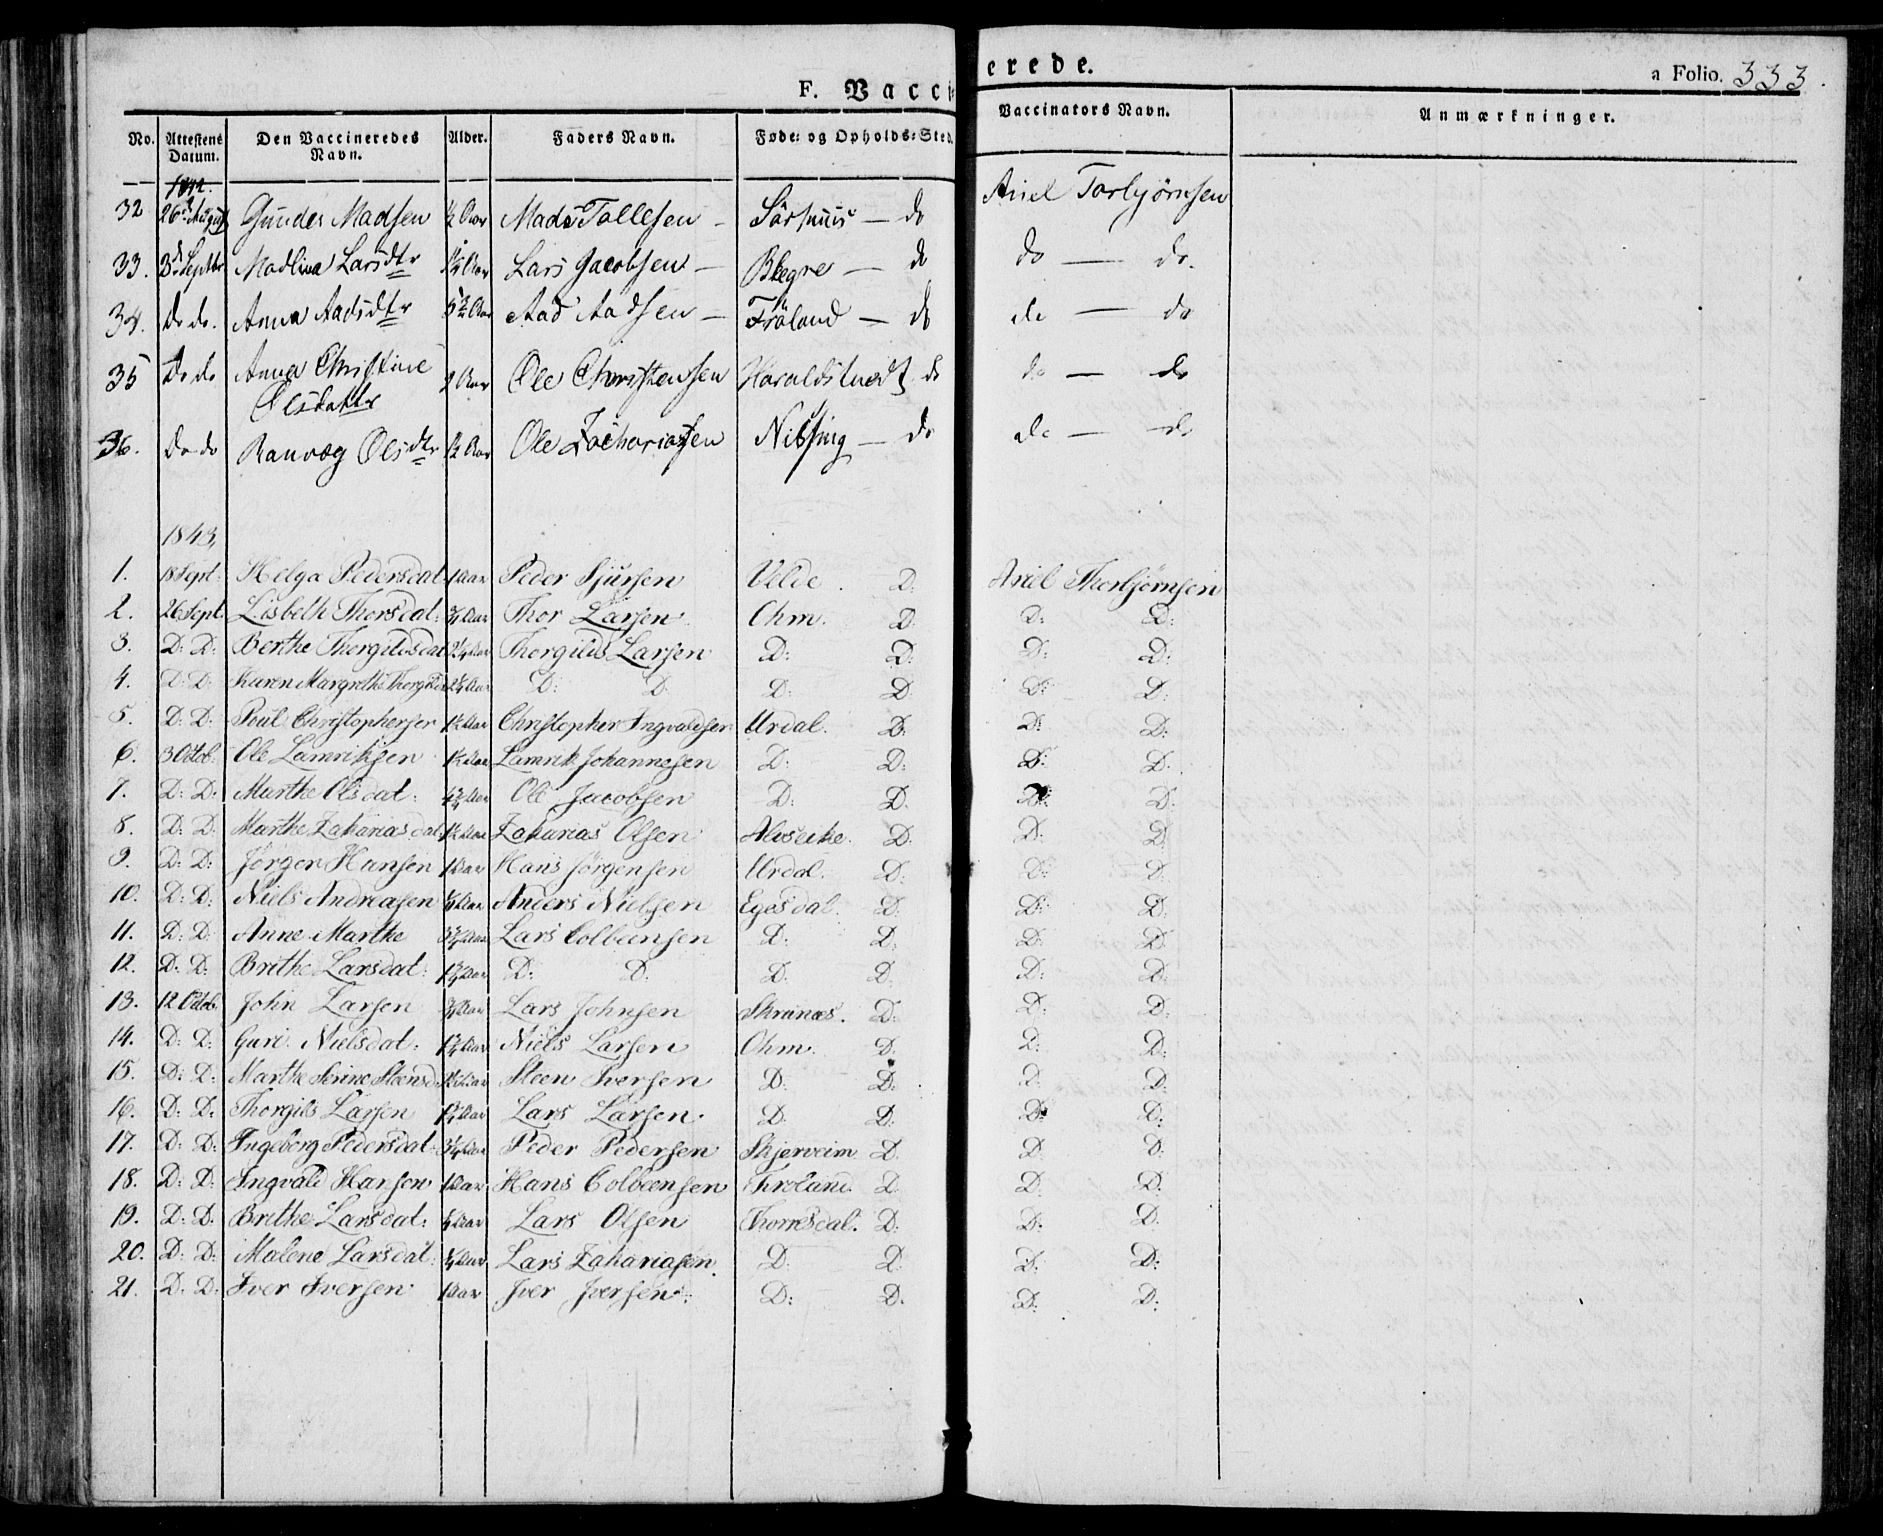 F. Vaccinerede.
a Folio. 333.
No. Attestens Datum. Den Vaccineredes Navn. Alder. Faders Navn. Føde- og Opholds-Sted. Vaccinators Navn. Anmærkninger.
1842.
32 26 August Gunder Madsen ½ Aar Mads Tollesen – – do Axel Torbjørnsen
33. 3d Septbr Madlina Larsdtr Aar Lars Jacobsen – Blegre – do do – do.
34. do do. Anna Aadsdtr Aar Aad Aadsen – Fröland – do do – do
35 do do Anna Christine Aar Ole Christensen do do – do
Olsdattr
36. do do Ranvæg Olsdtr ½ Aar Ole Zachariasen – do do – do
1843.
1. 18 Sept: Helga Pedersdat: 1 Aar Peder Sjursen Velde. D: Axel Thorbjørnsen
2. 26 Sept. Lisbeth Thorsdat: ¾ Aar Thor Larsen Ohm. D. D: D:
3. D: D: Berthe Thorgilsdat Aar Thorgils Larsen D: D: D: D:
4. D: D: Karen Margrethe Aar D: D. D: D D: D:
5. D: D: Poul Christophersen Aar Christopher Ingvaldsen Urdal. D. D: D:
6. 3 Octob: Ole Lamriksen Aar Lamrik Johannesen D: D: D: D.
7. D: D: Marthe Olsdat: Aar Ole Jacobsen D: D. D: D:
8. D: D. Marthe Zakariasdat Aar Zakarias Olsen Alvseike. D. D: D.
9. D: D: Jørgen Hansen 1 Aar Hans Jørgensen Urdal. D: D: D.
10. D: D: Niels Andreasen Aar Anders Nielsen Egesdal. D: D: D:
11. D: D. Anne Marthe Aar Lars Colbeensen D. D. D: D.
12. D: D: Brithe Larsdat: Aar D: D. D. D. D: D:
13. 12 Octob. John Larsen ¾ Aar Lars Johnsen D. D: D:
14. D: D: Guri Nielsdat: Aar Niels Larsen Ohm. D. D: D:
15. D: D. Marthe Serine Steensd Aar Steen Iversen D. D: D D:
16. D: D. Thorgils Larsen Aar Lars Larsen. D: D: D: D:
17. D: D: Ingeborg Pedersdat: Aar Peder Pedersen Skjerveim D. D: D.
18. D: D. Ingvald Hansen 1 Aar Hans Colbeensen Froland. D D: D:
19. D: D. Brithe Larsdat: Aar Lars Olsen Thorresdal. D. D: D.
20. D: D: Malene Larsdat: Aar Lars Zakariasen. D: D. D: D:
21. D: D: Iver Iversen 1 Aar Iver Iversen. D: D. D: D: